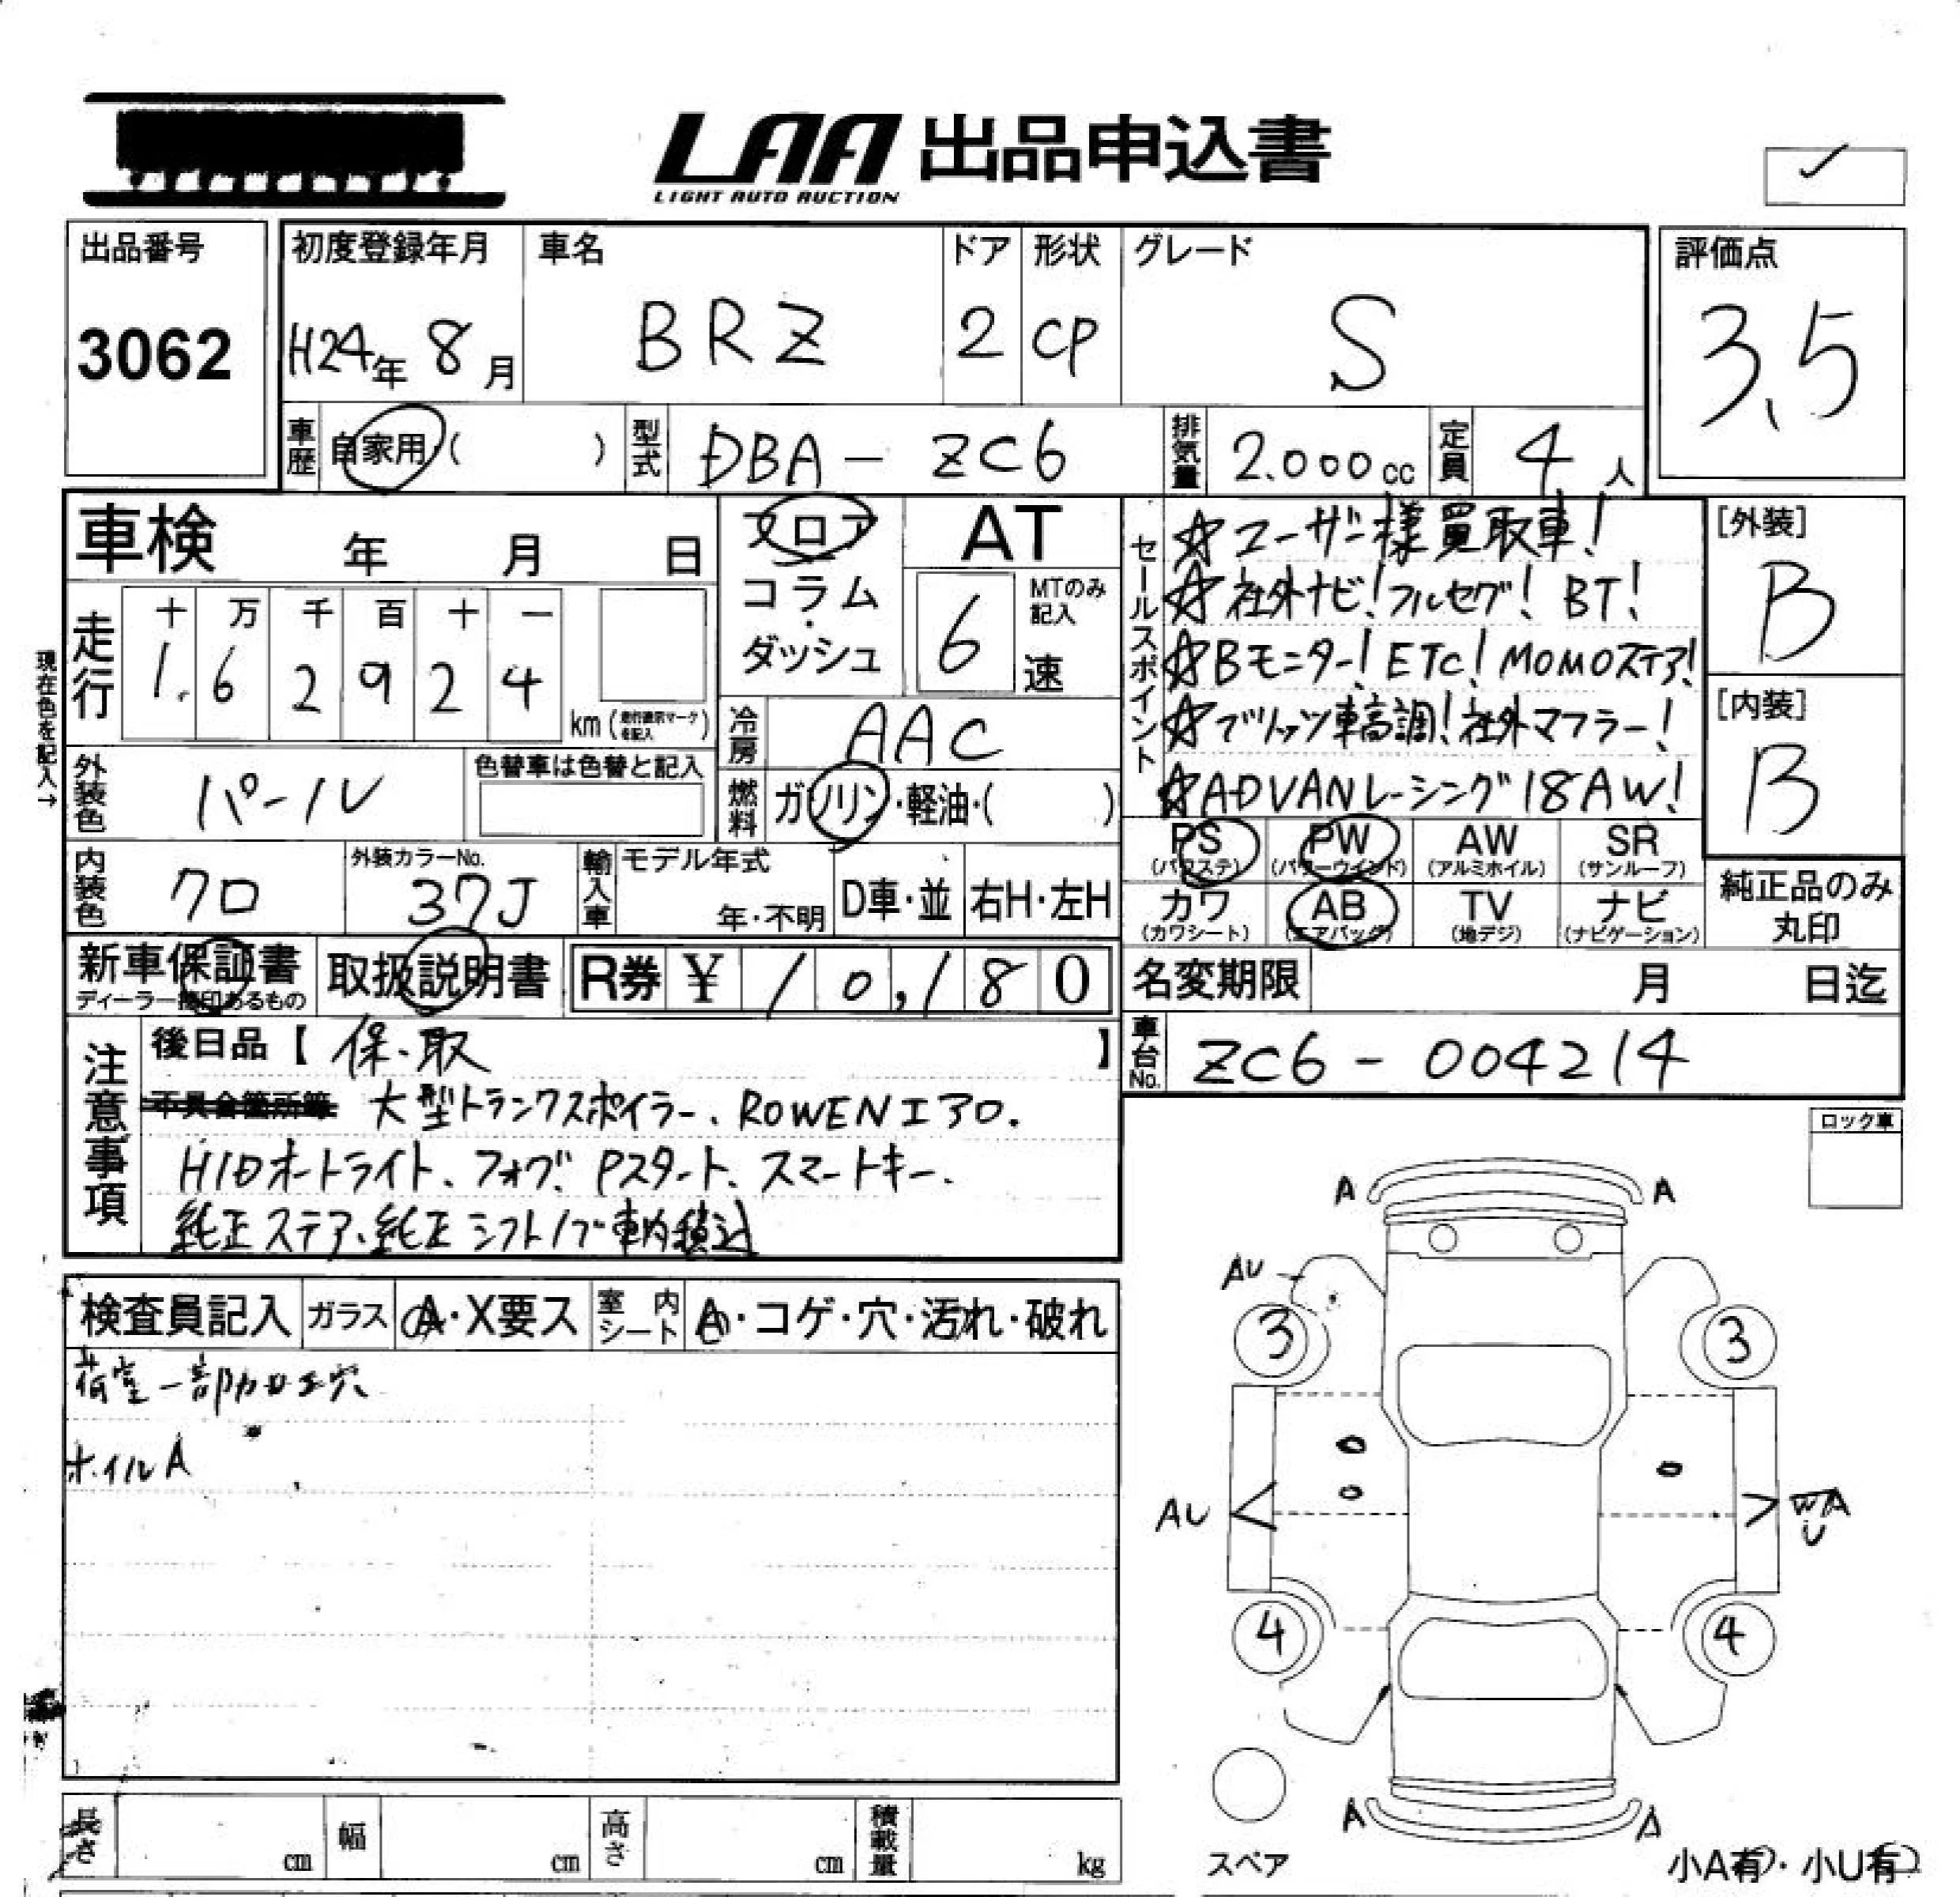 LAA 出品申込書
LIGHT AUTO AUCTION
出品番号
3062
初度登録年月
H24年 8月
車名
BRZ
ドア
2
形状
CP
グレード
S
評価点
3.5
車歴
自家用 ( )
型式
DBA - ZC6
排気量
2.000cc
定員
4人
車検 年 月 日
フロア
コラム・
ダッシュ
AT
6速
MTのみ
記入
セールスポイント
☆ユーザー様買取車!
☆社外ナビ!フルセグ!BT!
☆Bモニター!ETC!MOMOステア!
☆ブリッツ車高調!社外マフラー!
☆ADVANレーシング18AW!
[外装]
B
[内装]
B
現在色を記入→
走行
十 万 千 百 十 一
1.6 2 9 2 4
km (走行表示マークを記入)
冷房
AAC
外装色
パール
色替車は色替と記入
燃料
ガソリン・軽油・( )
PS (パワステ)
PW (パワーウインド)
AW (アルミホイル)
SR (サンルーフ)
カワ (カワシート)
AB (エアバッグ)
TV (地デジ)
ナビ (ナビゲーション)
純正品のみ
丸印
内装色
クロ
外装カラーNo.
37J
輸入車
モデル年式
年・不明
D車・並
右H・左H
新車保証書
ディーラー捺印あるもの
取扱説明書
R券 ¥ 10,180
名変期限 月 日迄
車台No.
ZC6 - 004214
注意事項
後日品【 保・取 】
不具合箇所等 大型トランクスポイラー、ROWENエアロ.
HIDオートライト、フォグ、Pスタート、スマートキー、
純正ステア、純正シフトノブ車内積込
ロック車
検査員記入
ガラス A・X要ス
室内シート A・コゲ・穴・汚れ・破れ
荷室一部加工穴
ホイルA
A A
AU
3 3
AU WA
U
4 4
A A
スペア
小A有・小U有
長さ cm
幅 cm
高さ cm
積載量 kg